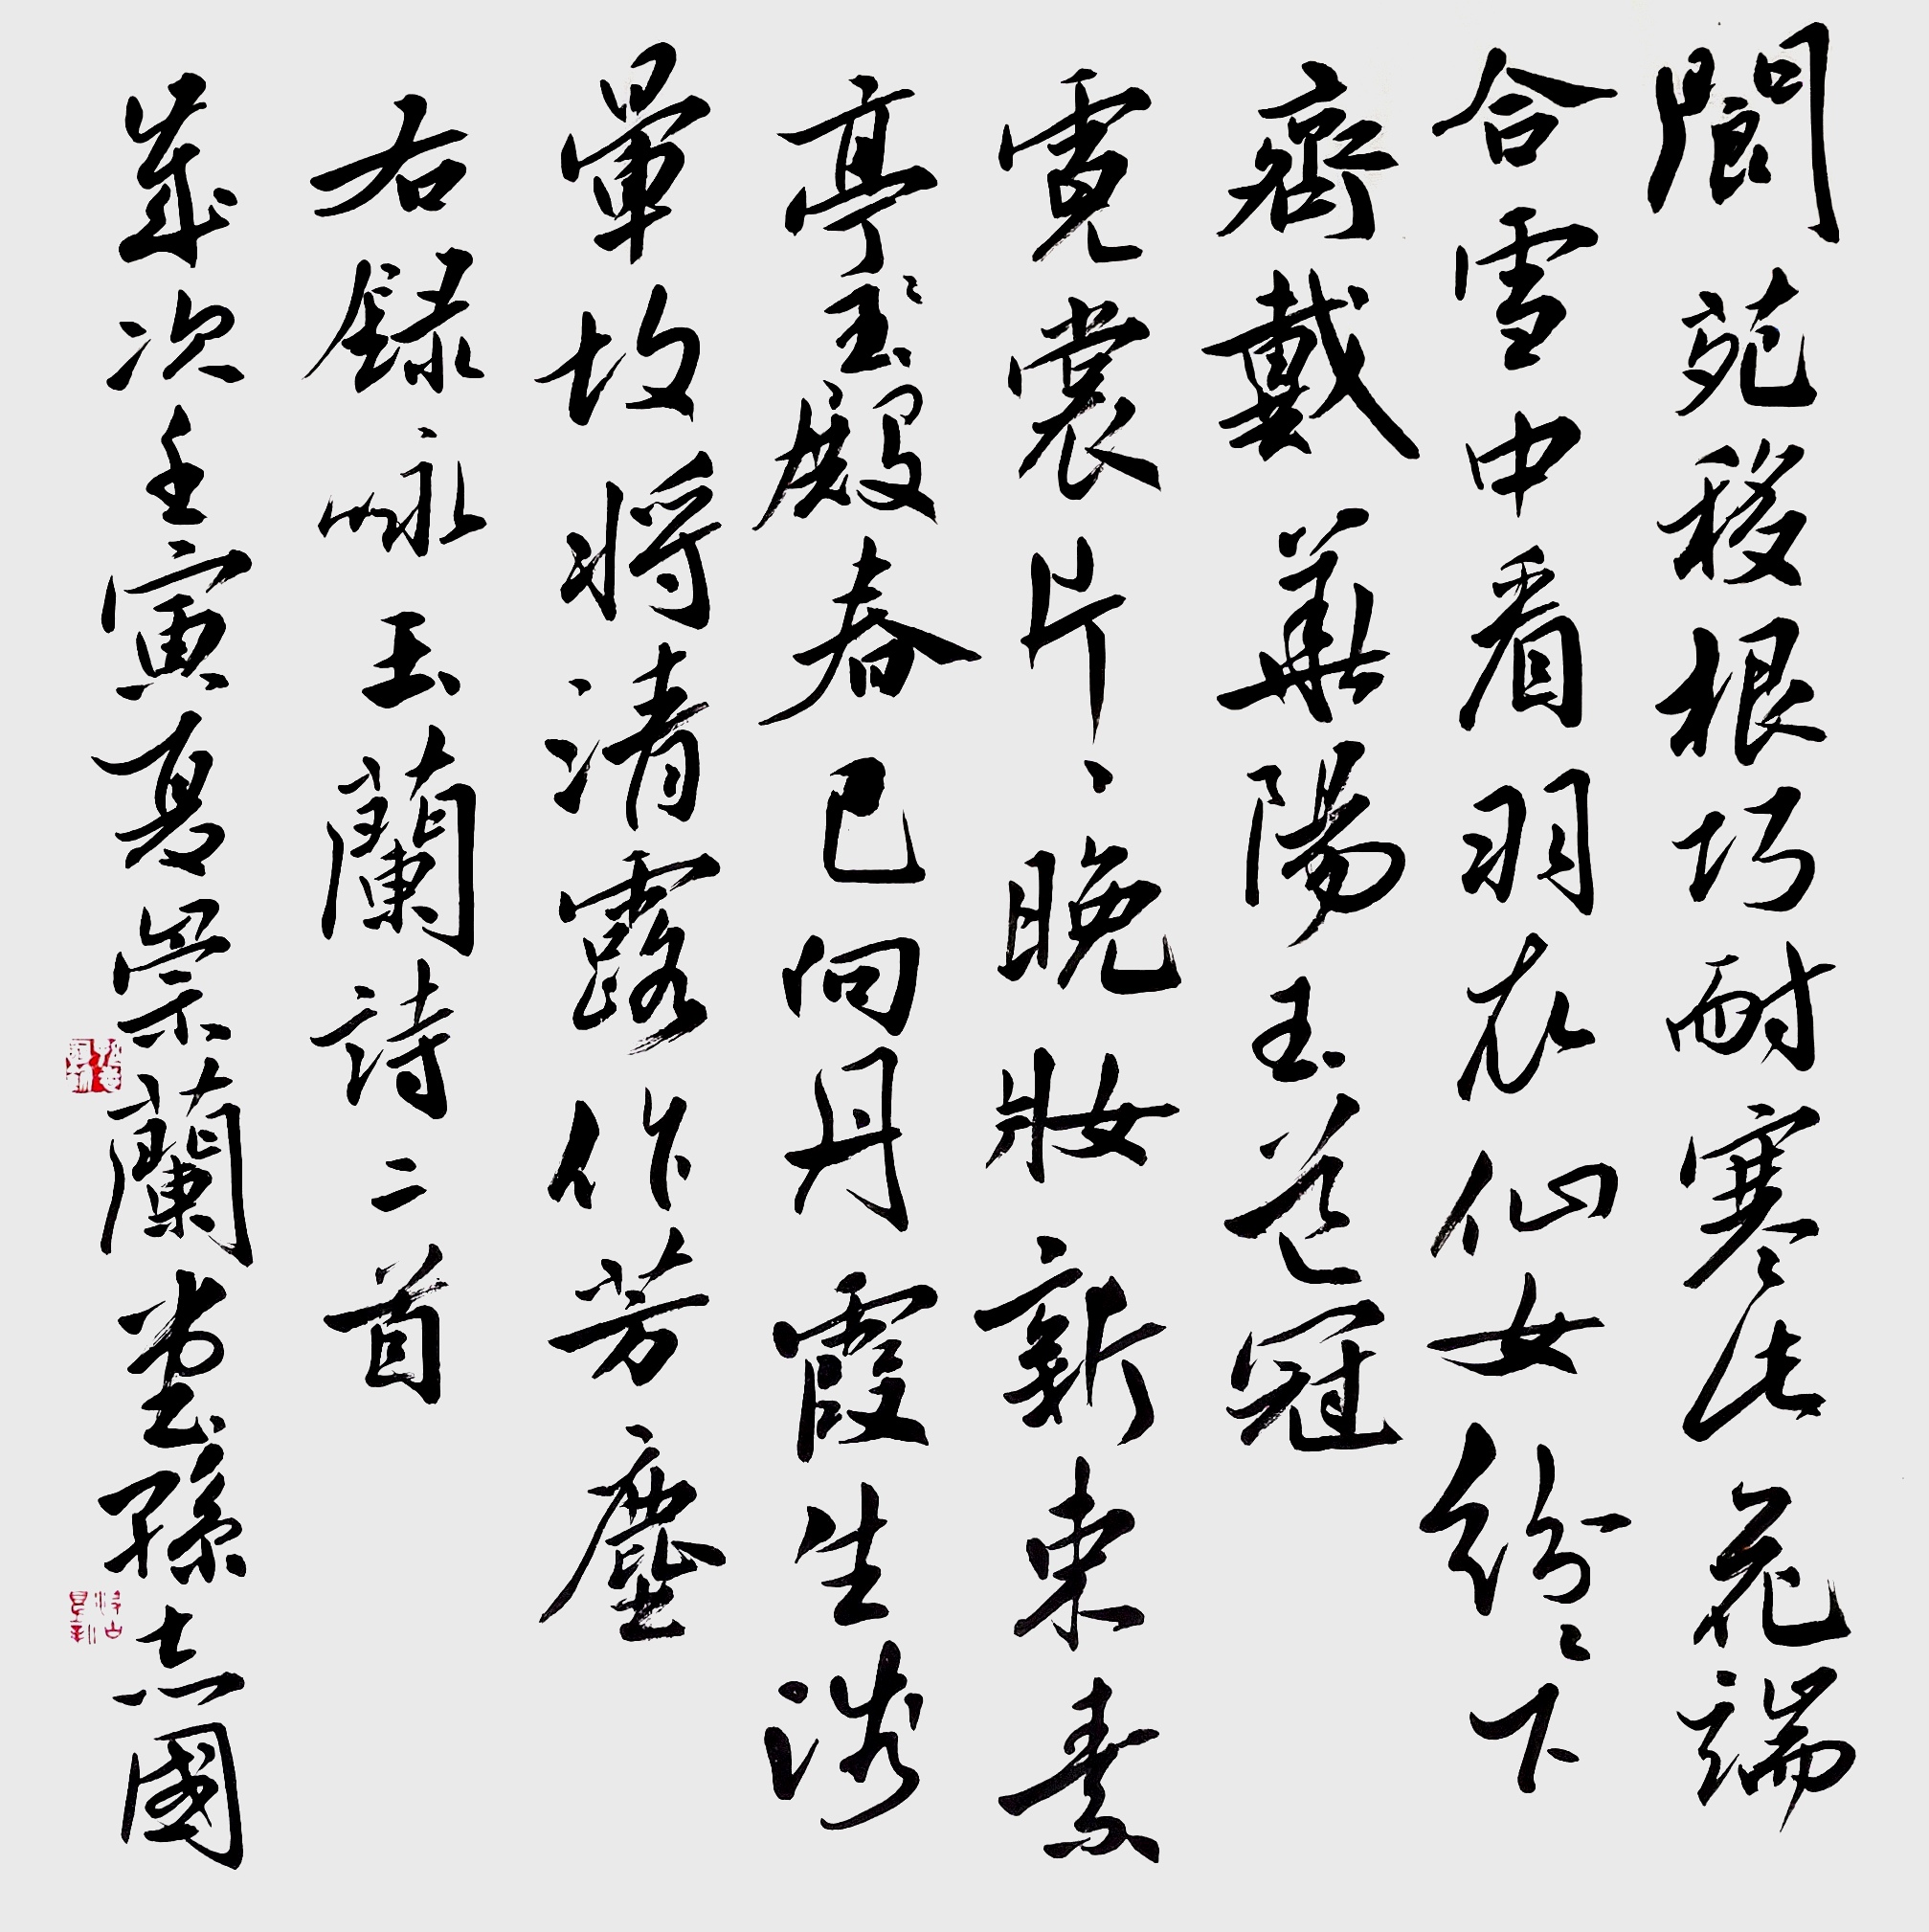 閬苑移根巧耐寒此花端
合雪中看羽衣仙女紛紛下
齊戴華陽玉道冠
霓裳片片晚妝新束素
亭亭玉殿春已向丹霞生淺
暈故將清露作芳塵
右錄咏玉蘭詩二首
歲次壬寅夏崇蘭堂孫國